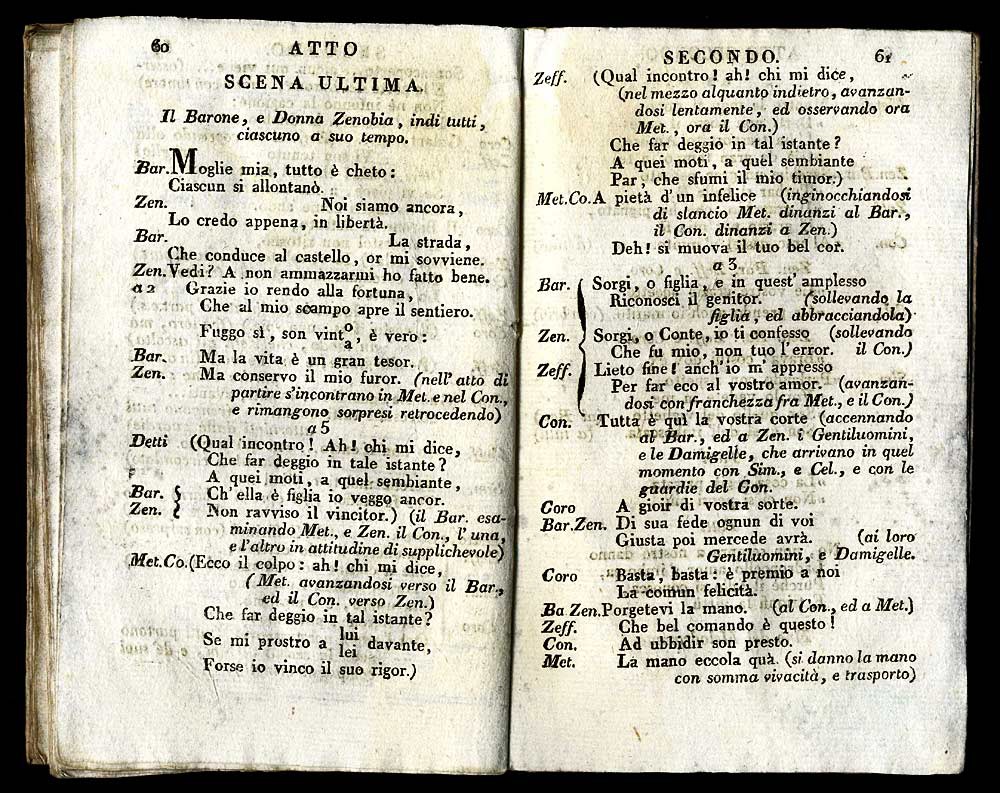 60 ATTO
SCENA ULTIMA.
Il Barone, e Donna Zenobia, indi tutti,
ciascuno a suo tempo.
Bar. Moglie mia, tutto è cheto:
Ciascun si allontanò.
Zen. Noi siamo ancora,
Lo credo appena, in libertà.
Bar. La strada,
Che conduce al castello, or mi sovviene.
Zen. Vedi? A non ammazzarmi ho fatto bene.
a 2 Grazie io rendo alla fortuna,
Che al mio scampo apre il sentiero.
Fuggo sì, son vinto/a, è vero:
Bar. Ma la vita è un gran tesor.
Zen. Ma conservo il mio furor. (nell' atto di
partire s'incontrano in Met. e nel Con.,
e rimangono sorpresi retrocedendo)
a 5
Detti (Qual incontro! Ah! chi mi dice,
Che far deggio in tale istante?
A quei moti, a quel sembiante,
Bar. Ch' ella è figlia io veggo ancor.
Zen. Non ravviso il vincitor.) (il Bar. esa-
minando Met., e Zen. il Con., l' una,
e l'altro in attitudine di supplichevole)
Met. Co. (Ecco il colpo: ah! chi mi dice,
(Met. avanzandosi verso il Bar.,
ed il Con. verso Zen.)
Che far deggio in tal istante?
Se mi prostro a lui/lei davante,
Forse io vinco il suo rigor.)
SECONDO. 61
Zeff. (Qual incontro! ah! chi mi dice,
(nel mezzo alquanto indietro, avanzan-
dosi lentamente, ed osservando ora
Met., ora il Con.)
Che far deggio in tal istante?
A quei moti, a quel sembiante
Par, che sfumi il mio timor.)
Met. Co. A pietà d' un infelice (inginocchiandosi
di slancio Met. dinanzi al Bar.,
il Con. dinanzi a Zen.)
Deh! si muova il tuo bel cor.
a 3
Bar. Sorgi, o figlia, e in quest' amplesso
Riconosci il genitor. (sollevando la
figlia, ed abbracciandola)
Zen. Sorgi, o Conte, io ti confesso (sollevando
Che fu mio, non tuo l'error. il Con.)
Zeff. Lieto fine! anch' io m' appresso
Per far eco al vostro amor. (avanzan-
dosi con franchezza fra Met., e il Con.)
Con. Tutta è quì la vostra corte (accennando
al Bar., ed a Zen. i Gentiluomini,
e le Damigelle, che arrivano in quel
momento con Sim., e Cel., e con le
guardie del Gon.
Coro A gioir di vostra sorte.
Bar. Zen. Di sua fede ognun di voi
Giusta poi mercede avrà. (ai loro
Gentiluomini, e Damigelle.
Coro Basta, basta: è premio a noi
La comun felicità.
Ba Zen. Porgetevi la mano. (al Con., ed a Met.)
Zeff. Che bel comando è questo!
Con. Ad ubbidir son presto.
Met. La mano eccola quà. (si danno la mano
con somma vivacità, e trasporto)